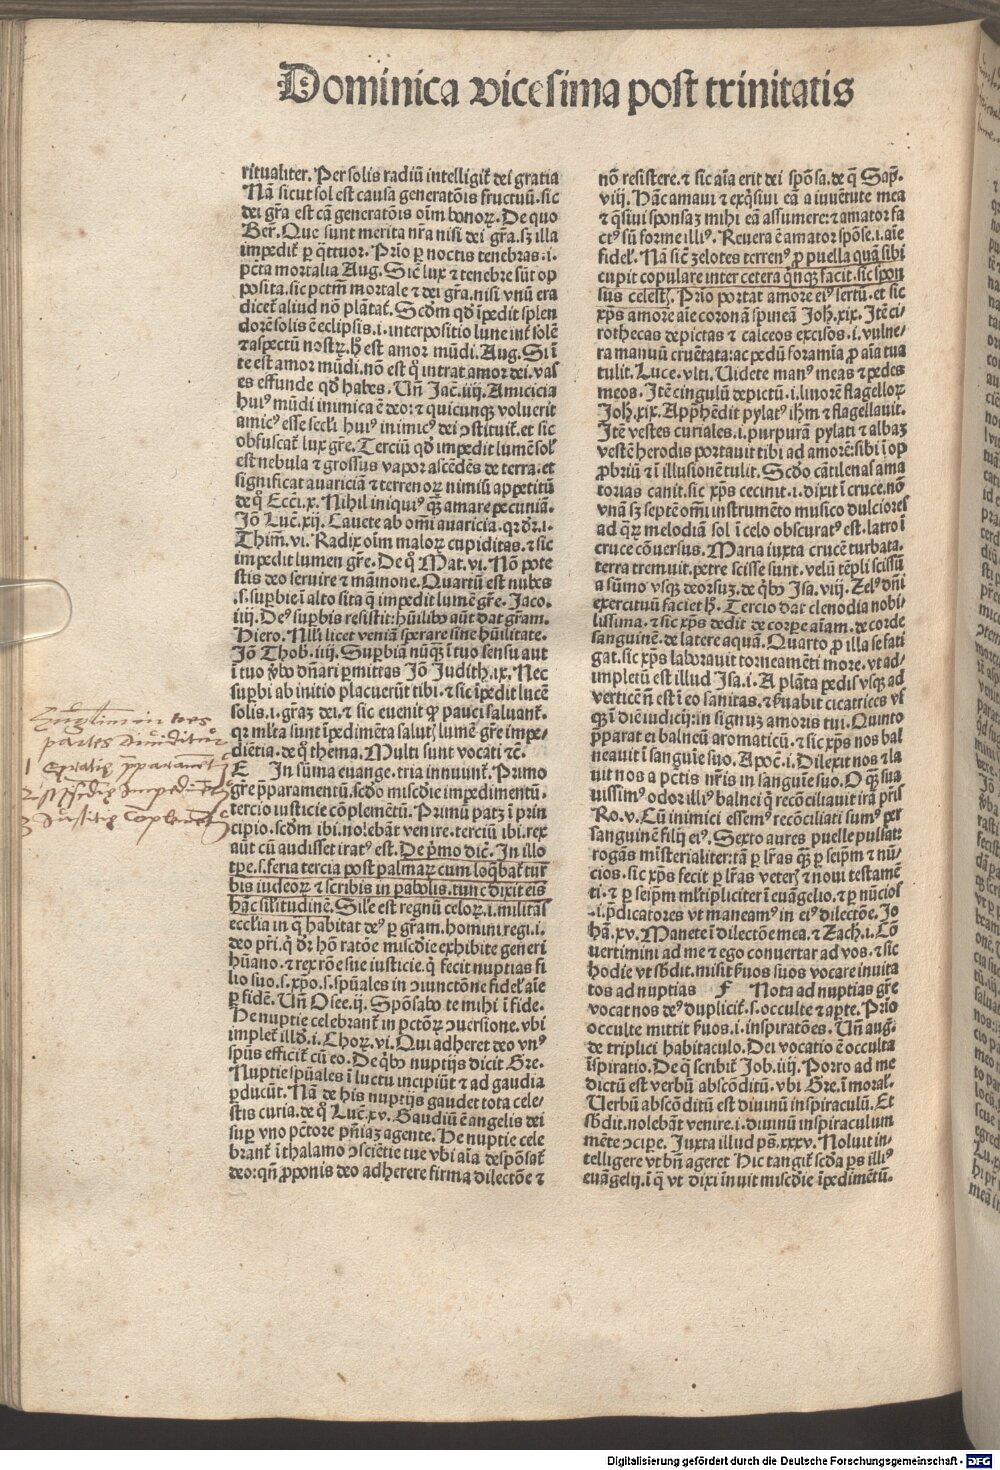 Dominica vicesima post trinitatis
ritualiter. Per solis radiū intelligit̄ dei gratia
Nā sicut sol est causa generatōis fructuū. sic
dei gr̄a est cā generatōis oīm bonoꝝ. De quo
Ber̄. Que sunt merita nr̄a nisi dei gr̄a. sꝫ illa
impedit̄ ꝑ q̄ttuor. Prīo ꝑ noctis tenebras .i.
pctā mortalia Aug. Sic̄ lux ⁊ tenebre sūt op
posita. sic pctm̄ mortale ⁊ dei gr̄a. nisi vnū era
dicet̄ aliud nō plātat̄. Scdm̄ qd̄ īpedit splen
dorē solis ē eclipsis .i. interpositio lune int̄ solē
⁊ aspectū nostꝝ. hͦ est amor mūdi. Aug. Si ī
te est amor mūdi. nō est q̄ intrat amor dei. vas
es effunde qd̄ habes. Vn̄ Jac̄. iiij. Amicicia
huiꝰ mūdi inimica ē deo: ⁊ quicunqꝫ voluerit
amicꝰ esse sec̄li huiꝰ inimicꝰ dei ↄstituit̄. et sic
obfuscat̄ lux gr̄e. Terciū qd̄ impedit lumē sol̄
est nebula ⁊ grossus vapor ascēdēs de terra. et
significat auariciā ⁊ terrenoꝝ nimiū appetitū
de qͦ Ecci. x. Nihil iniquiꝰ qꝫ amare pecuniā.
Jō Luc̄. xij. Cauete ab om̄i auaricia. qꝛ dꝛ .i.
Thim̄. vi. Radix oīm maloꝝ cupiditas. ⁊ sic
impedit lumen gr̄e. De qͦ Mat. vi. Nō pote
stis deo seruire ⁊ māmone. Quartū est nubes
.s. supbie ī alto sita q̄ impedit lumē gr̄e. Jaco.
iiij. Deꝰ supbis resistit: hūilibꝰ aūt dat gr̄am.
Hiero. Nll̄i licet veniā sperare sine hūilitate.
Jō Thob. iiij. Supbiā nūqꝫ ī tuo sensu aut
ī tuo v̄bo dn̄ari ꝑmittas Jō Judith. ix. Nec
supbi ab initio placuerūt tibi. ⁊ sic īpedit lucē
solis .i. gr̄aꝫ dei. ⁊ sic euenit ꝙ pauci saluant̄.
qꝛ ml̄ta sunt īpedimēta salut̄ꝭ lumē gr̄e impe/
diētia. de q̄ thema. Multi sunt vocati ⁊c̄.
E In sūma euange. tria innuunt̄. Primo
gr̄e p̄paramentū. scd̄o miscd̄ie impedimentū.
tercio iusticie cōplementū. Primū patꝫ ī prin
cipio. scdm̄ ibi. nolebāt venire. terciū ibi. rex
aūt cū audisset iratꝰ est. De p̄mo dic̄. In illo
tpe. s. feria tercia post palmaꝝ cum loq̄bat̄ tur
bis iudeoꝝ ⁊ scribis in ꝑabolis. tunc dixit eis
hāc silitudinē. Sil̄e est regnū celoꝝ .i. militās
eccl̄ia in q̄ habitat deꝰ ꝑ gr̄am. homini regi .i.
deo pr̄i. q̄ dꝛ hō ratōe miscd̄ie exhibite generi
hūano. ⁊ rex rōe sue iusticie. q̄ fecit nuptias fi
lio suo. s. xp̄o. s. spūales in ↄiunctōne fidel̄ aīe
ꝑ fidē. Vn̄ Osee. ij. Spōsabo te mihi ī fide.
He nuptie celebrant̄ in pctōꝝ ↄuersione. vbi
implet̄ illd̄ .i. Choꝝ. vi. Qui adheret deo vnꝰ
spūs efficit̄ cū eo. De q̄bꝰ nuptijs dicit Gre.
Nuptie spūales ī luctu incipiūt ⁊ ad gaudia
ꝑducūt. Nā de his nuptijs gaudet tota cele/
stis curia. de qͦ Luc̄. xv. Gaudiū ē angelis dei
suꝑ vno pctōre pn̄iaꝫ agente. He nuptie cele
brant̄ ī thalamo ↄsciētie tue vbi aīa despōsat̄
deo: qn̄ ꝓponis deo adherere firma dilectōe ⁊
nō resistere. ⁊ sic aīa erit dei spōsa. de q̄ Sap̄.
viij. Hāc amaui ⁊ exq̄siui eā a iuuētute mea
⁊ q̄siui sponsaꝫ mihi eā assumere: ⁊ amator fa
ctꝰ sū forme illiꝰ. Reuera ē amator spōse .i. aīe
fidel̄. Nā sic̄ zelotes terrenꝰ ꝓ puella quā sibi
cupit copulare inter cetera qn̄qꝫ facit. sic spon
sus celest̄ꝭ. Prīo portat amore eiꝰ sertū. et sic
xp̄s amore aīe coronā spineā Joh. xix. Itē ci/
rothecas depictas ⁊ calceos excisos .i. vulne/
ra manuū cruētata: ac pedū foramīa ꝓ aīa tua
tulit. Luce. vlti. Videte manꝰ meas ⁊ pedes
meos. Itē cingulū depictū .i. liuorē flagelloꝝ
Joh. xix. Apphēdit pylatꝰ ihm̄ ⁊ flagellauit.
Itē vestes curiales .i. purpurā pylati ⁊ albaꝫ
vestē herodis portauit tibi ad amorē: sibi ī op
ꝓbriū ⁊ ī illusionē tulit. Scd̄o cātilenas ama
torias canit. sic xp̄s cecinit .i. dixit ī cruce. nō
vnā sꝫ septē om̄i instrumēto musico dulciores
ad q̄ꝝ melodiā sol ī celo obscuratꝰ est. latro ī
cruce cōuersus. Maria iuxta crucē turbata.
terra tremuit. petre scisse sunt. velū tēpli scissū
a sūmo vsqꝫ deorsuꝫ. de q̄bꝰ Isa. viij. Zelꝰ dn̄i
exercituū faciet hͦ. Tercio dat clenodia nobi/
lissima. ⁊ sic xp̄s dedit de corpe aīam. de corde
sanguinē. de latere aquā. Quarto ꝓ illa se fati
gat. sic xp̄s laborauit torneamēti more. vt ad/
impletū est illud Isa .i. A plāta pedis vsqꝫ ad
verticē n̄ est ī eo sanitas. ⁊ ẜuabit cicatrices vsqꝫ
qꝫ ī diē iudicij: in signuꝫ amoris tui. Quinto
p̄parat ei balneū aromaticū. ⁊ sic xp̄s nos bal
neauit ī sanguīe suo. Apoc̄ .i. Dilexit nos ⁊ la
uit nos a pctis nr̄is in sanguīe suo. O qꝫ sua
uissimꝰ odor illiꝰ balnei q̄ recōciliauit irā pr̄is
Ro. v. Cū inimici essemꝰ recōciliati sumꝰ per
sanguinē filij eiꝰ. Sexto aures puelle pulsat:
rogās mīsterialiter: tā ꝑ lr̄as qꝫ ꝑ seipm̄ ⁊ nū/
cios. sic xp̄s fecit ꝑ lr̄as veterꝭ ⁊ noui testamē
ti. ⁊ ꝑ seipm̄ ml̄tipliciter ī euāgelio. ⁊ ꝑ nūcios
.i. p̄dicatores vt maneamꝰ in eiꝰ dilectōe. Jo
hā. xv. Manete ī dilectōe mea. ⁊ Zach .i. Cō
uertimini ad me ⁊ ego conuertar ad vos. ⁊ sic
hodie vt sb̄dit. misit ẜuos suos vocare inuita
tos ad nuptias F Nota ad nuptias gr̄e
vocat nos deꝰ duplicit̄. s. occulte ⁊ apte. Prīo
occulte mittit ẜuos .i. inspiratōes. Vn̄ auḡ.
de triplici habitaculo. Dei vocatio ē occulta
īspiratio. De q̄ scribit̄ Job. iiij. Porro ad me
dictū est verbū abscōditū. vbi Gre. ī moral̄.
Verbū abscōditū est diuinū inspiraculū. Et
sb̄dit. nolebāt venire .i. diuinū inspiraculum
mēte ↄcipe. Juxta illud ps̄. xxxv. Noluit in/
telligere vt bn̄ ageret Hic tangit̄ scd̄a ps illiꝰ
euāgelij. ī q̄ vt dixi īnuit miscd̄ie īpedimētū.
in tres
partes diuiditur
1
2
3
Digitalisierung gefördert durch die Deutsche Forschungsgemeinschaft - DFG